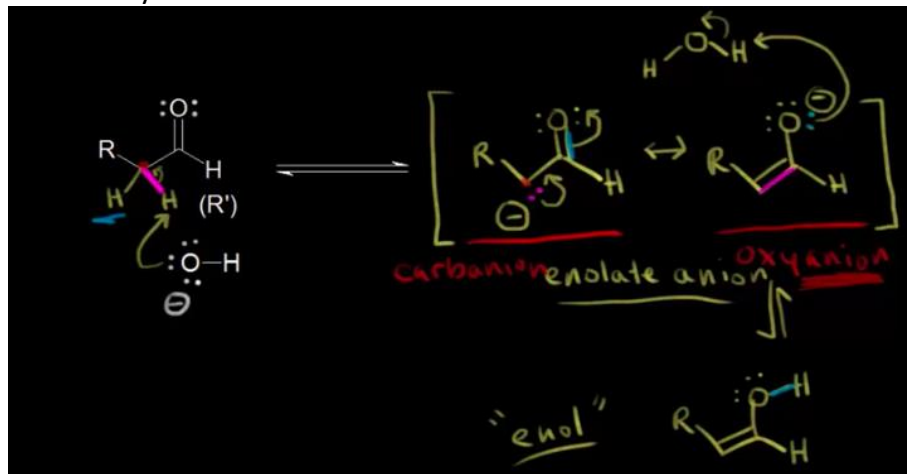 :O:
R
H
H H (R')
:O–H
⊖
[ R :O: H ⊖ ↔ R :O: ⊖ H ]
H O H
carbanion
enolate anion
oxyanion
"enol"
R :O–H H